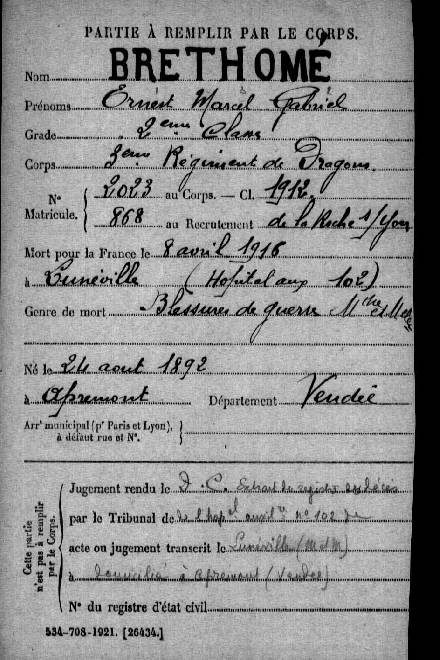 PARTIE À REMPLIR PAR LE CORPS.
Nom BRETHOMÉ
Prénoms Ernest Marcel Gabriel
Grade 2eme Classe
Corps 3eme Régiment de Dragons
N° Matricule. 2023 au Corps. — Cl. 1912
868 au Recrutement de la Roche s/Yon
Mort pour la France le 8 avril 1916
à Lunéville (Hopital aux 102)
Genre de mort Blessures de guerre Mthe et Melle
Né le 24 aout 1892
à Apremont Département Vendée
Arrt municipal (pr Paris et Lyon), à défaut rue et N°.
Cette partie n'est pas à remplir par le Corps.
Jugement rendu le D.C. Extrait du registre des décès
par le Tribunal de de l'hopal auxilre no 102 de
acte ou jugement transcrit le Lunéville (M et M)
à domicilié à Apremont (Vendée)
N° du registre d'état civil
534-708-1921. [26434.]